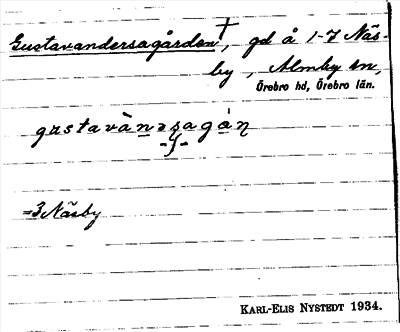 Gustavandersagården†, gd å 1-7 Näs-
by, Almby sn,
Örebro hd, Örebro län.
gustavànәsagán
=3 Näsby
KARL-ELIS NYSTEDT 1934.